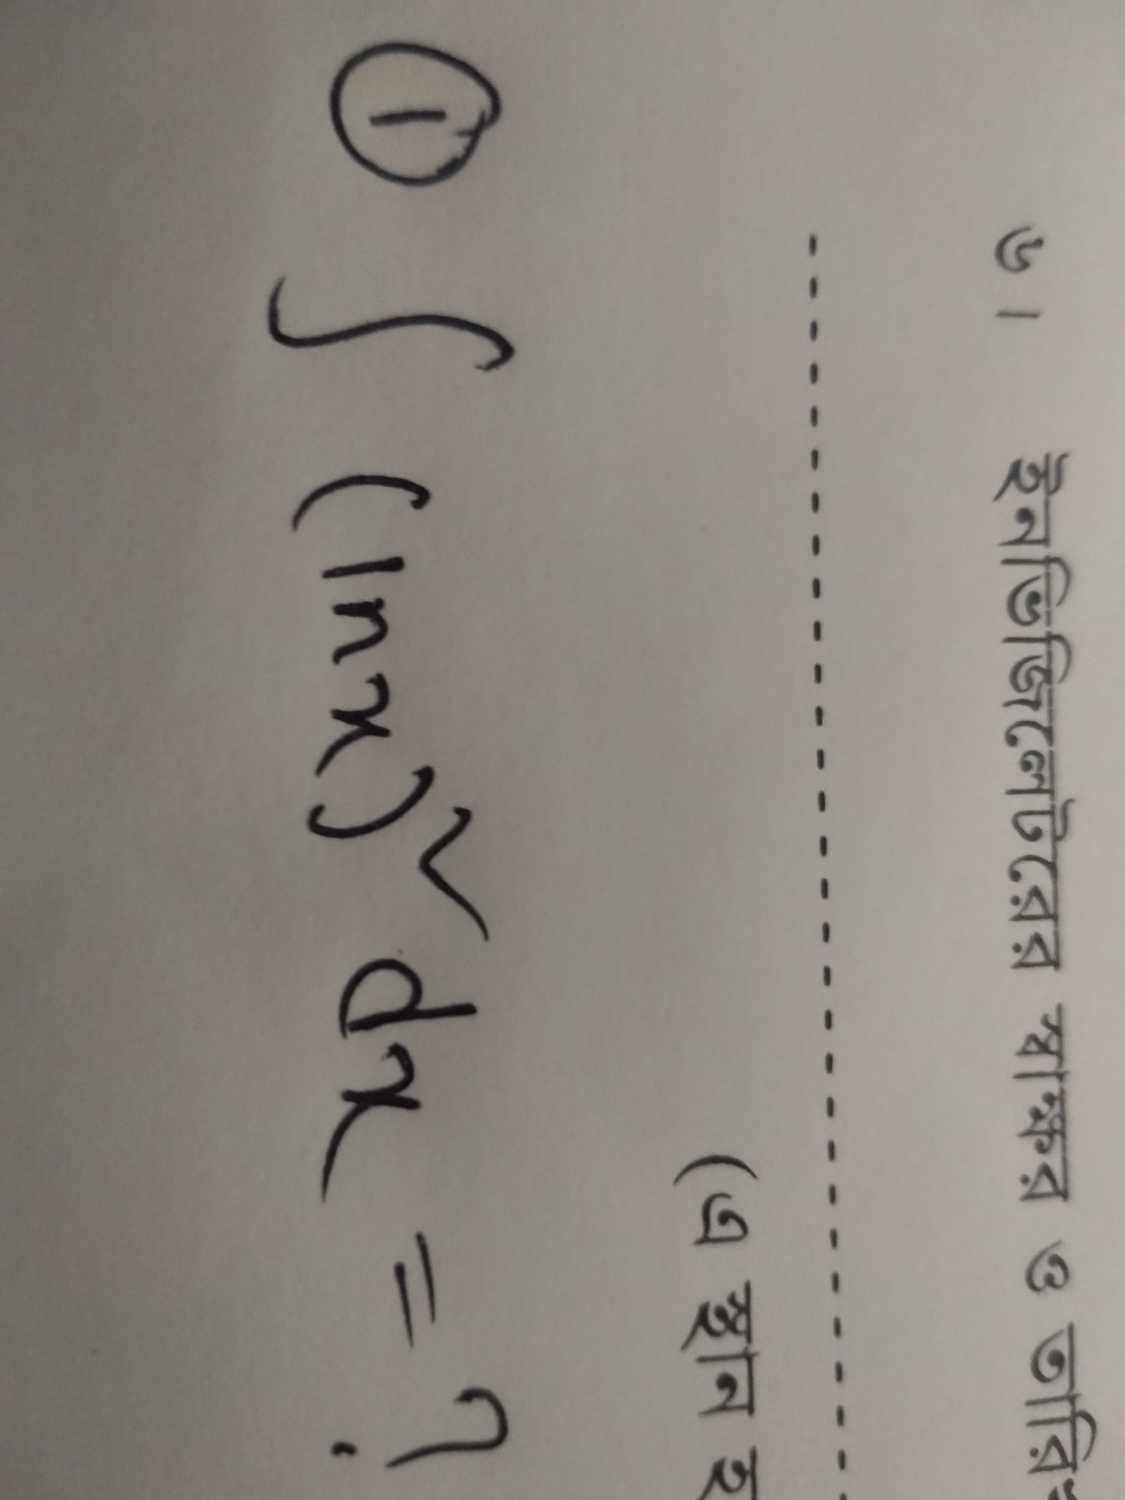 ৬। ইনভিজিলেটরের স্বাক্ষর ও
(এ স্থান
① ∫ (lnx)² dx = ?